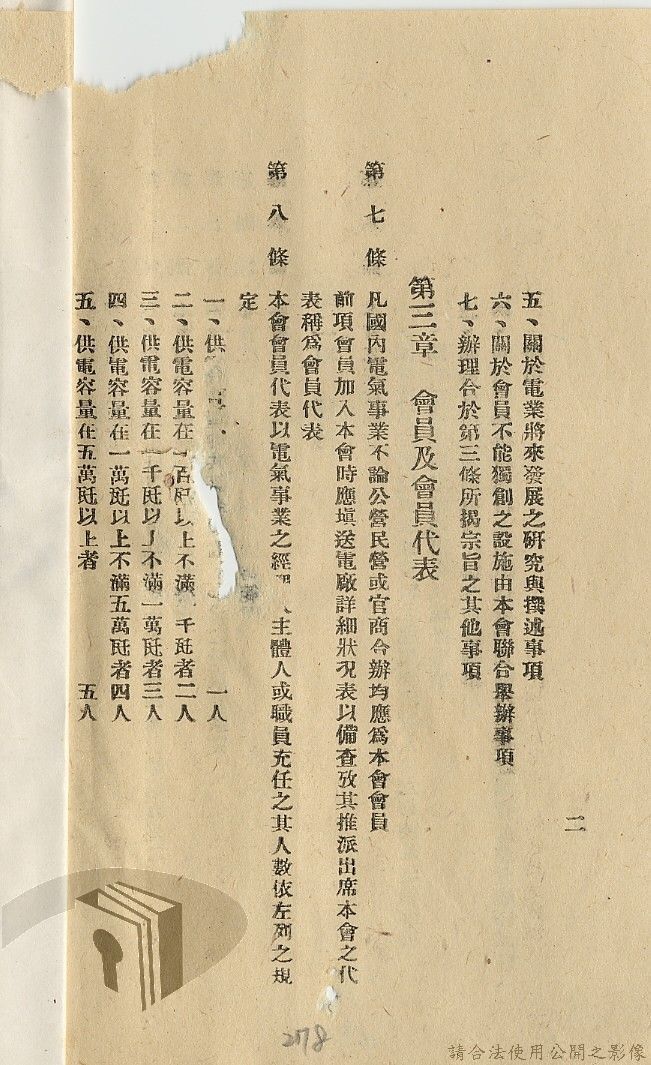 二
五、關於電業將來發展之研究與撰述事項
六、關於會員不能獨創之設施由本會聯合舉辦事項
七、辦理合於第三條所揭宗旨之其他事項
第三章　會員及會員代表
第七條　凡國內電氣事業不論公營民營或官商合辦均應爲本會會員
前項會員加入本會時應塡送電廠詳細狀况表以備查攷其推派出席本會之代
表稱爲會員代表
第八條　本會會員代表以電氣事業之經　主體人或職員充任之其人數依左列之規
定
一、供　　一人
二、供電容量在　百瓩以上不滿　千瓩者二人
三、供電容量在一千瓩以上不滿一萬瓩者三人
四、供電容量在一萬瓩以上不滿五萬瓩者四人
五、供電容量在五萬瓩以上者　五人
278
請合法使用公開之影像